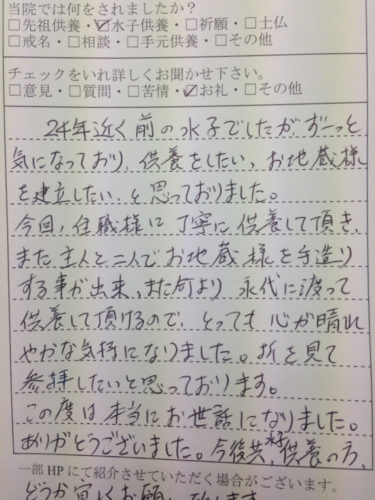 当院では何をされましたか？
□先祖供養・☑水子供養・□祈願・□土仏
□戒名・□相談・□手元供養・□その他
チェックをいれ詳しくお聞かせ下さい。
□意見・□質問・□苦情・☑お礼・□その他
24年近く前の水子でしたが、ずーっと
気になっており、供養をしたい、お地蔵様
を建立したい、と思っておりました。
今回、住職様に丁寧に供養して頂き、
また主人と二人でお地蔵様を手造り
する事が出来、また何より永代に渡って
供養して頂けるので、とっても心が晴れ
やかな気持になりました。折を見て
参拝したいと思っております。
この度は本当にお世話になりました。
ありがとうございました。今後共、水子供養の方、
一部HPにて紹介させていただく場合がございます。
どうか宜しくお願い致します